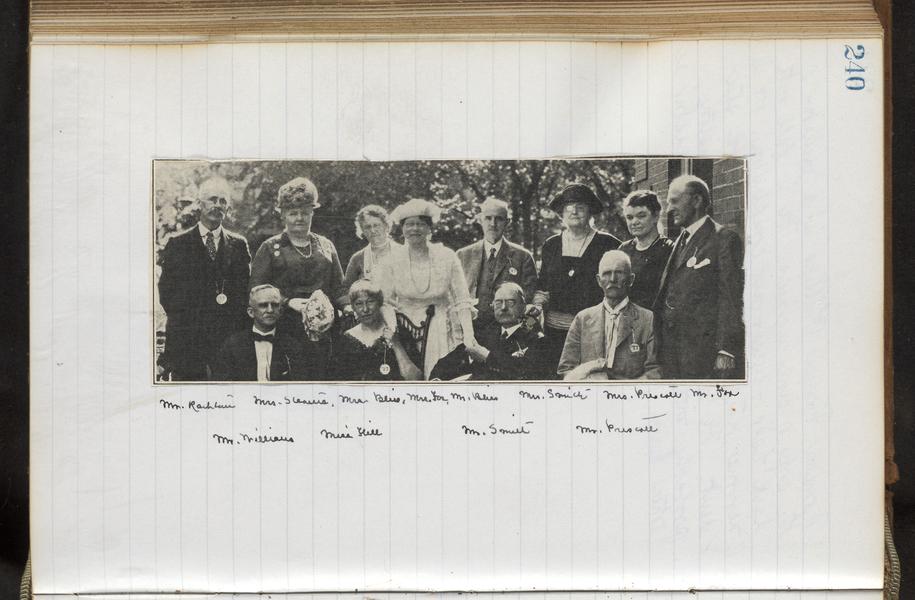 240
Mr. Mrs. Stearns, Mrs. Bliss, Mrs. Fox, Mr. Bliss Mrs. Smith Mrs. Prescott Mr. Fox
Mr. Williams Miss Hill Mr. Smith Mr. Prescott